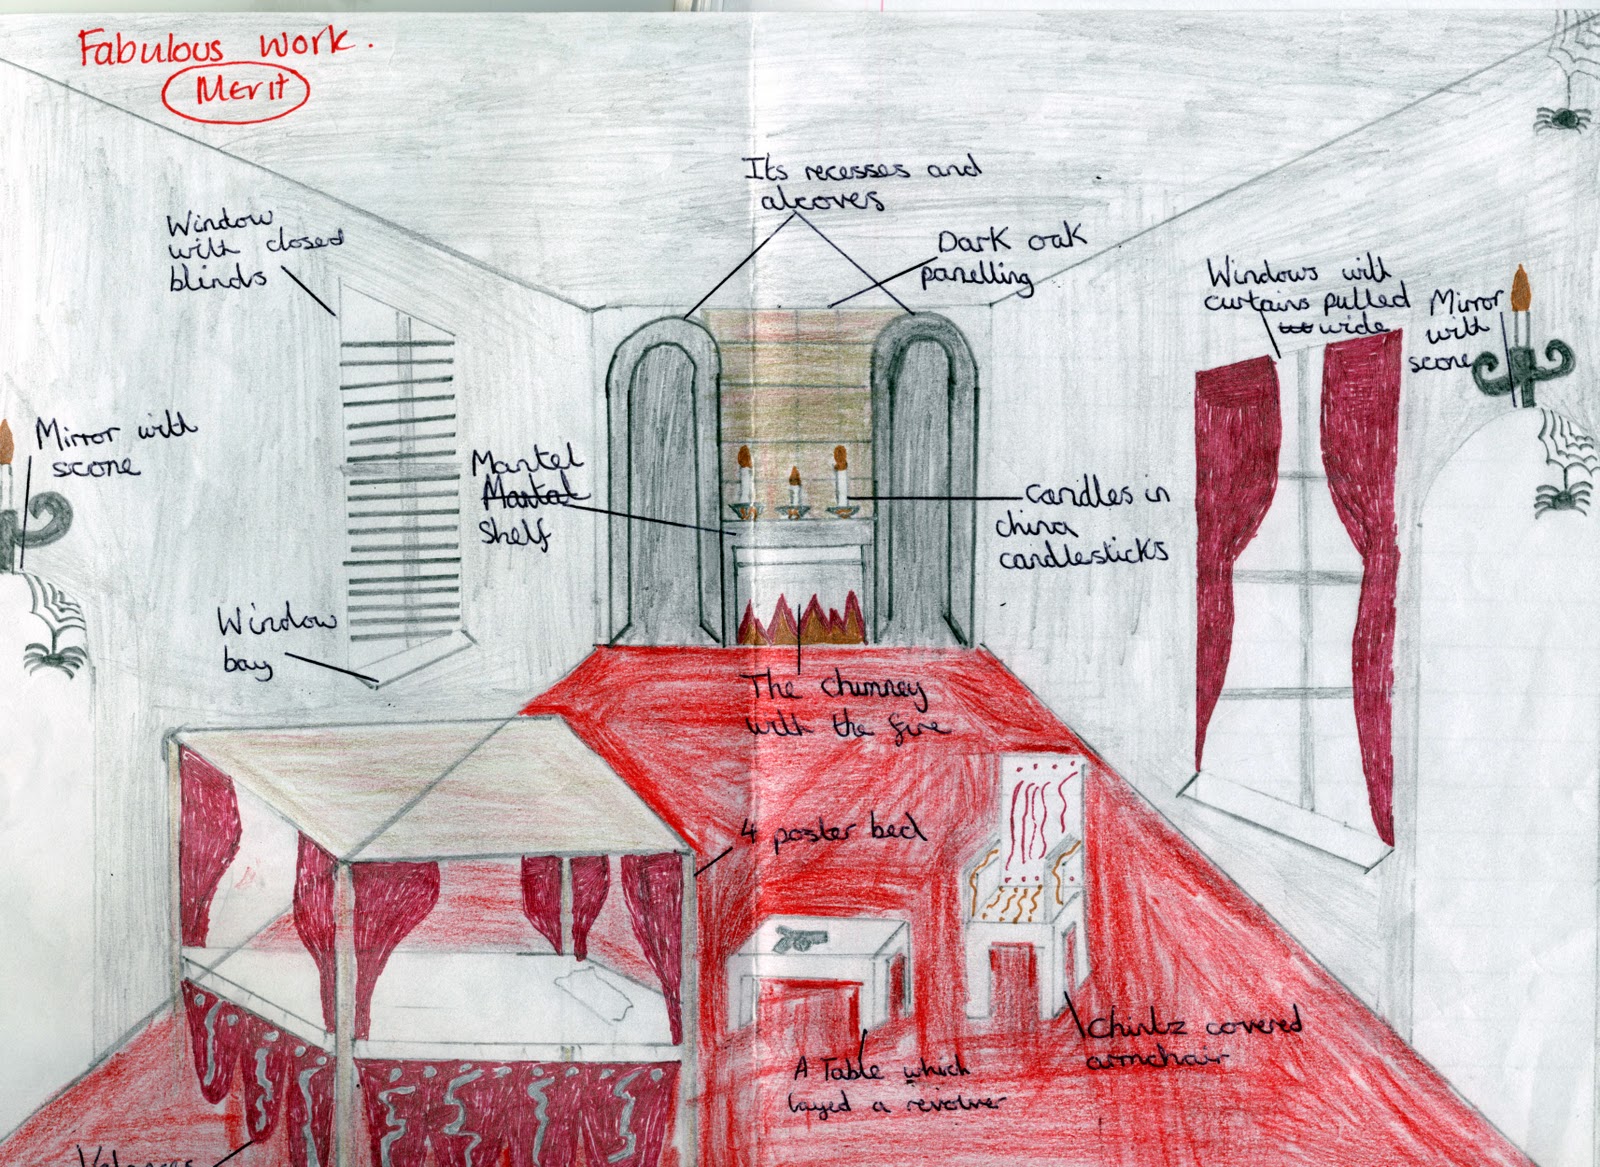 Fabulous work.
Merit
Its recesses and
alcoves
Window
with closed
blinds
Dark oak
panelling
Windows with
curtains pulled
wide
Mirror
with
scone
Mirror with
scone
Mantel
Mantal
shelf
candles in
china
candlesticks
Window
bay
The chimney
with the fire
4 poster bed
Chintz covered
armchair
A Table which
layed a revolver
Valances